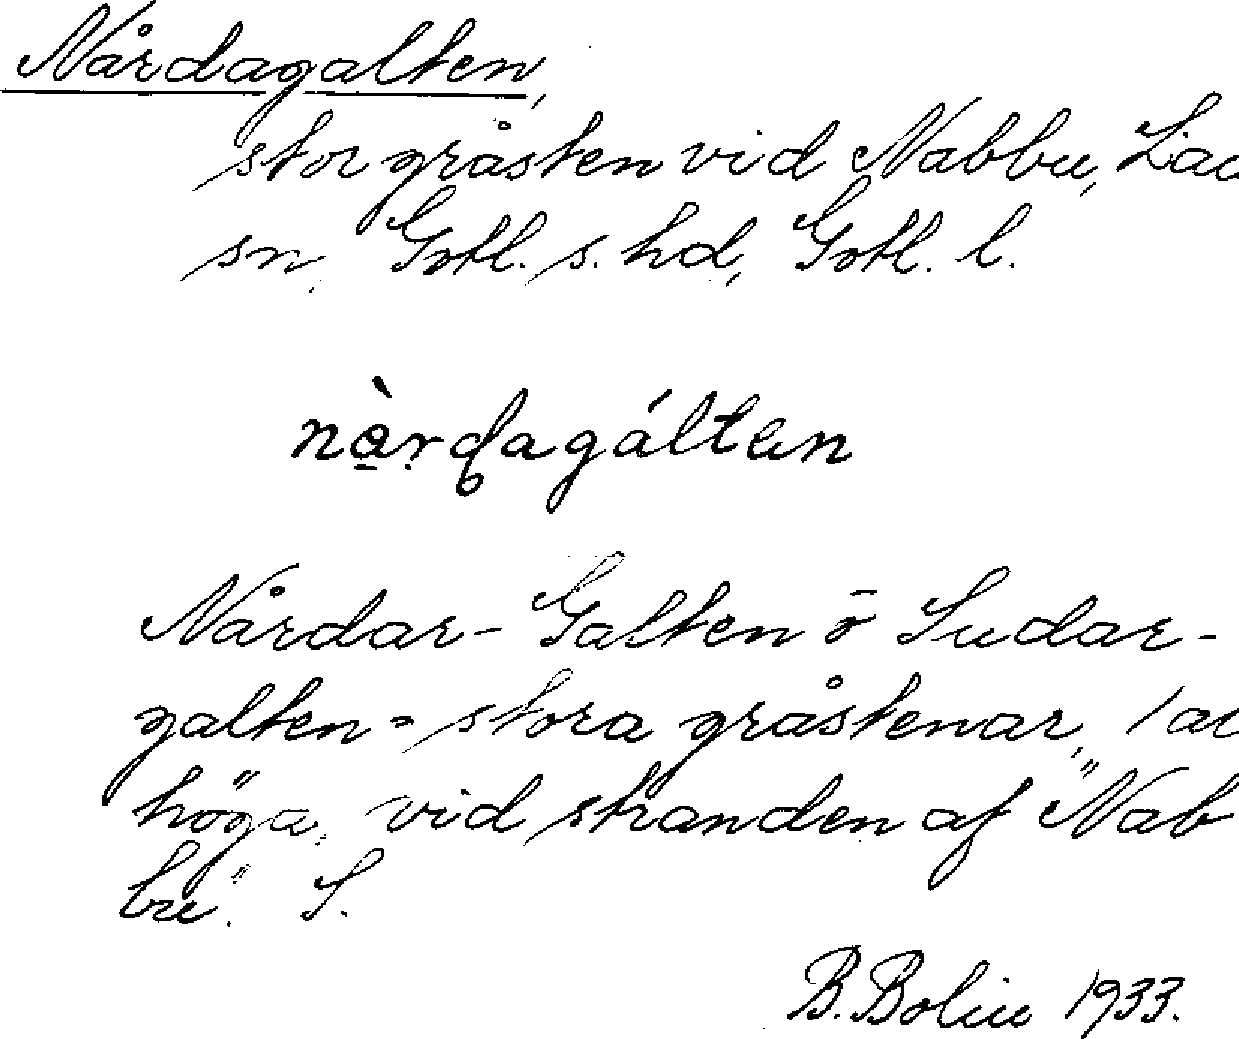 Nårdagalten,
stor gråsten vid Nabbu, Lau
sn, Gotl. s. hd, Gotl. l.
nàrdagálten
Nårdar- Galten o Sudar-
galten = stora gråstenar,
höga, vid stranden af "Nab
bu". S.
B. Bolin 1933.